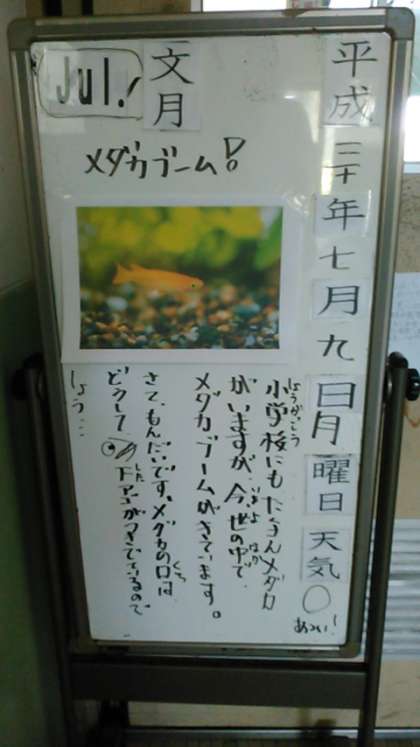 平成三十年七月九日月曜日 天気 ○
あつい!
Jul. 文月
メダカブーム!
小学校にもたくさんメダカ
がいますが、今、世の中で
メダカブームがきています。
さて、もんだいです。メダカの口は
どうして下アゴがつきでているので
しょう…